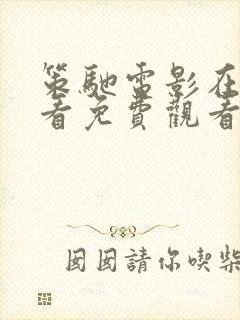 策馳電影在
看免費觀看
囡囡請你喫柴